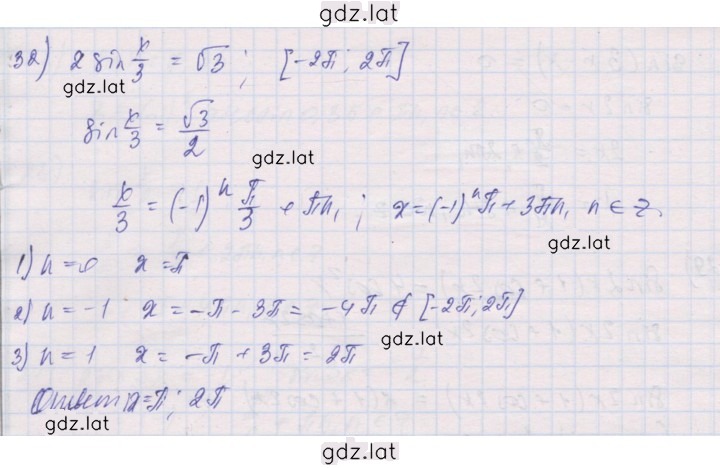 gdz.lat
32) 2 sin x/3 = √3; [-2π; 2π]
gdz.lat
sin x/3 = √3/2
gdz.lat
x/3 = (-1)ⁿ π/3 + πn, ; x = (-1)ⁿ π + 3πn, n ∈ z.
gdz.lat
1) n = 0 x = π
2) n = -1 x = -π - 3π = -4π ∉ [-2π; 2π]
gdz.lat
3) n = 1 x = -π + 3π = 2π
Ответ: x = π; 2π
gdz.lat
gdz.lat